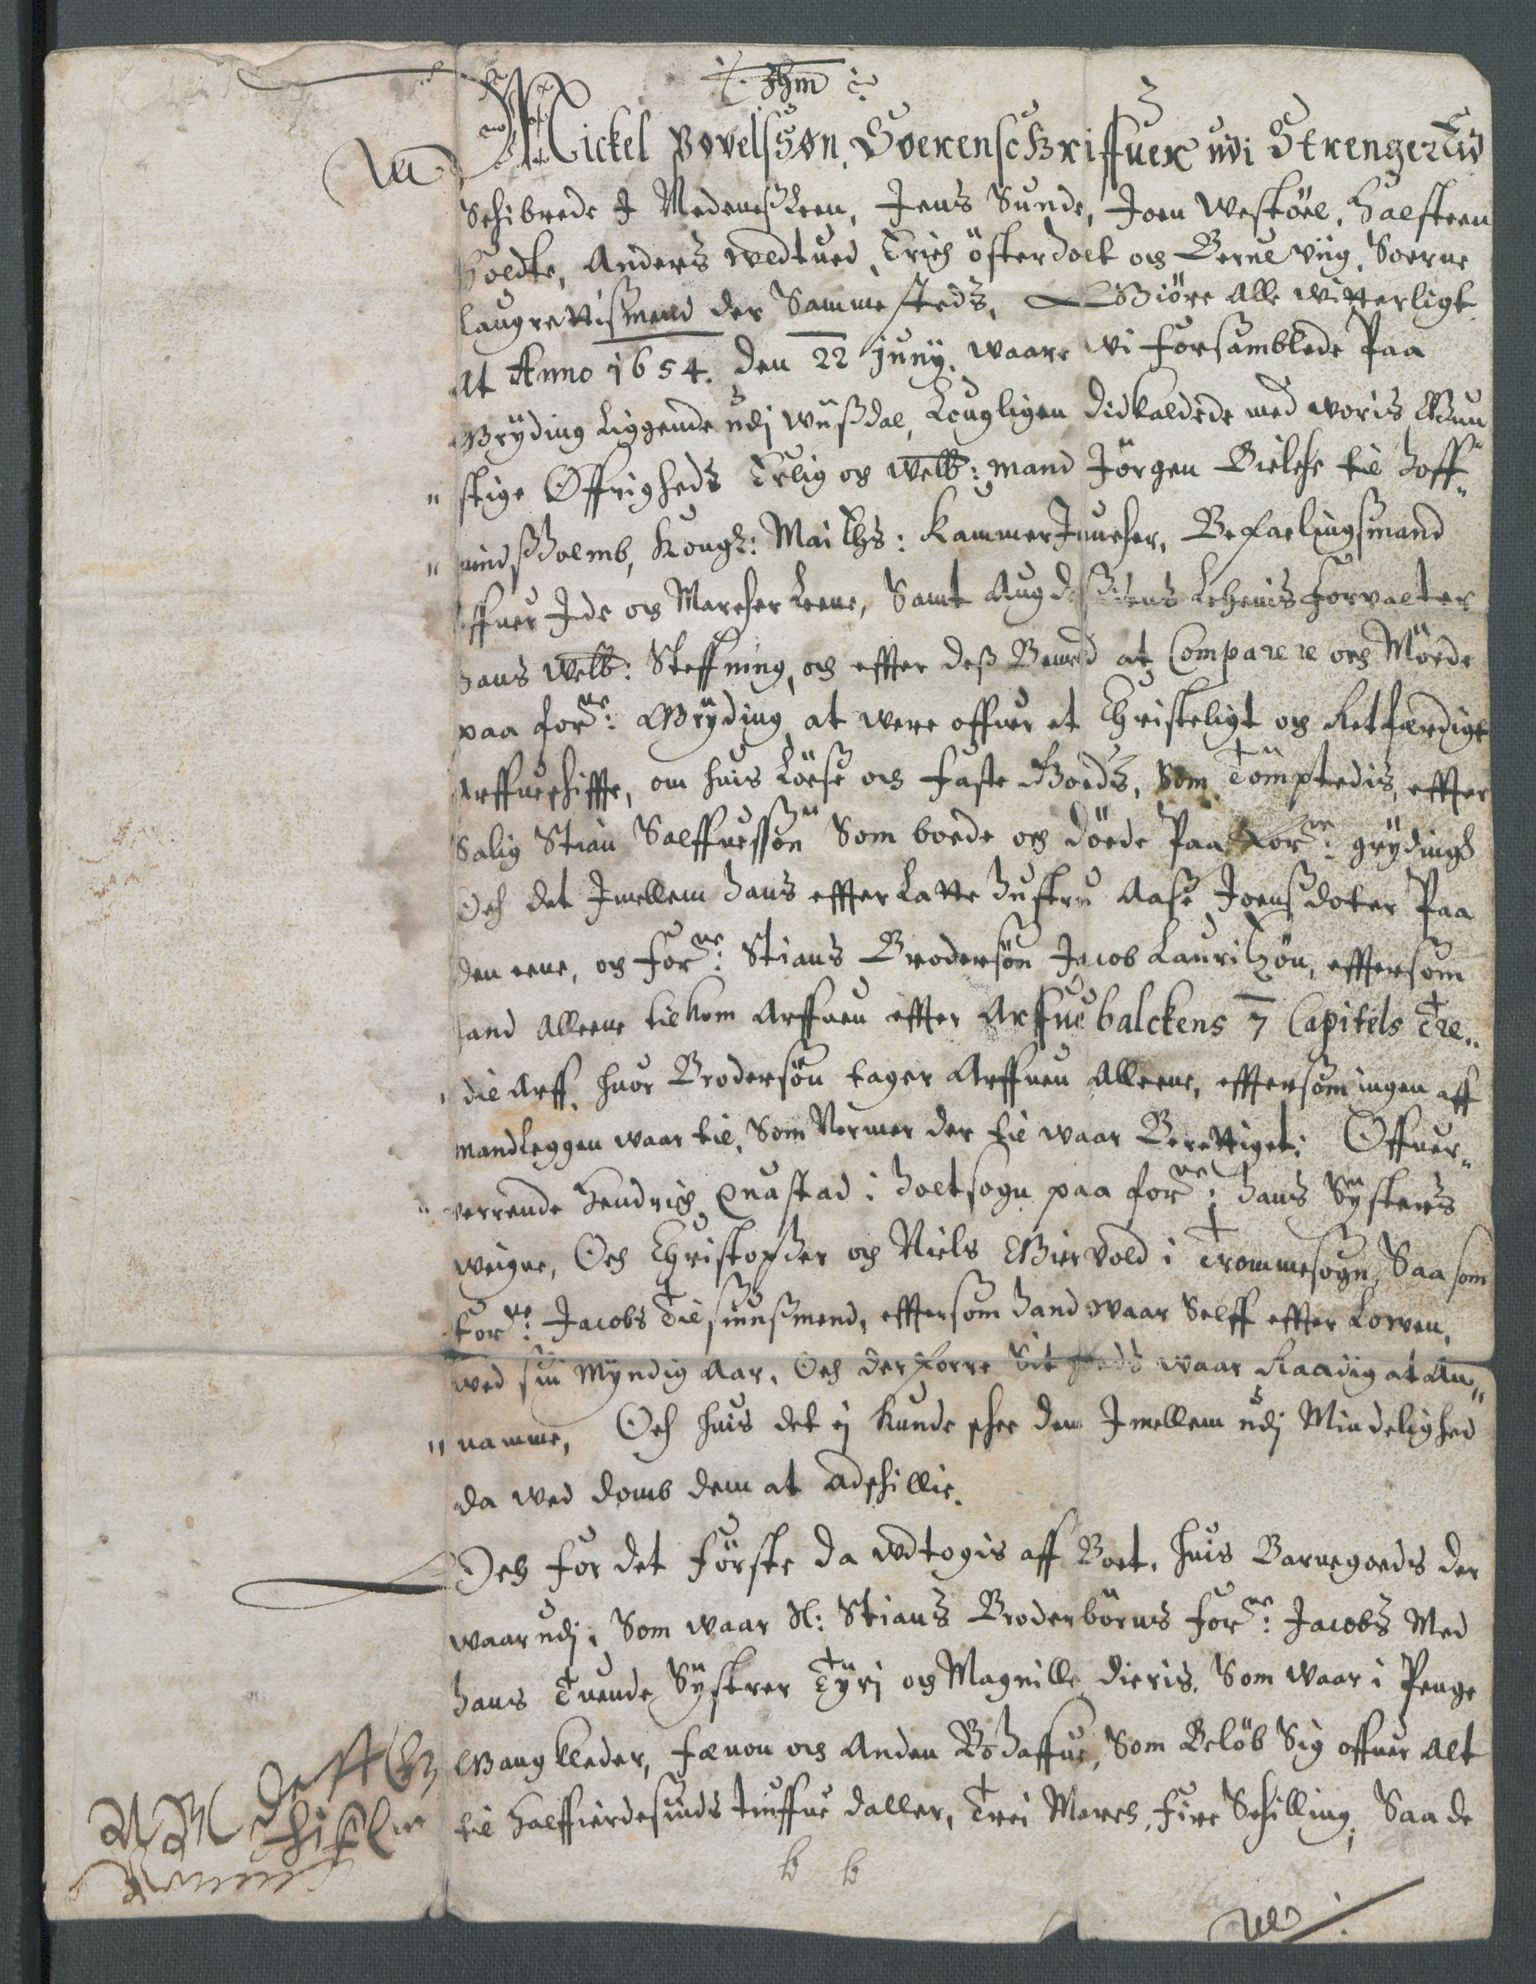 Jhm
Mickel Povelssøn, Soerenschriffuer udi Strengereid
Schibrede I Nedenesßleen, Jens Sunde, Joen Westöel, Halsteen
Holdte, Anders Wedtued, Erich österholt och Berul Viig, Soerne
Laugrettißmend der Sammesteds, Giöre Alle Witterligt
At Anno 1654. den 22 Junij, waare wi forsamblede Paa
Gryding Liggende udj Wußdal, Lougligen didkaldede med voris Gun
stige Øffrigheds Erlig og Welb: Mand Jörgen Bielche til hoff
uindßholmb, Kongl: Mai tts: Kammer Juncher, Befaelingsmand
offuer Ide och Marcher Leene, Samt Augdesidens Lehens Forvalter
hans Welb: Steffning, och effter deß Bemeld at Comparere och Mörde
paa forne: Gryding at were offuer et Christeligt och Retferdigt
Arffueschiffte, om huis Löese och faste Goeds, Som Tömptedis, effter
Salig Stian Salffuessön Som boede och döede Paa Forne: grydingh
Och det Imellem hans effterlatte hustru Aase Joensdoter Paa
den eene, og forne: Stians Brodersön Jacob Lauritzön, efftersom
hand Alleene tilkom Arffuen effter Arfue balckens 7 Capitels Tre
die Arff, huor Brodersön tager Arffuen Alleene, efftersom ingen aff
mandleggen waar til, Som Nermer der til waar Berettiget; Offuer
werrende Hendrich Quastad i holtsogn paa forne: hans Systers
weigne, Och Christopher og Niels Giervold i Trommesogn, Saasom
forne: Jacobs Tilsiunßmend, efftersom hand waar Selff effter Lowen,
wed sin Myndig Aar, Och derforre Sit goeds waar Raadig at An
namme, Och huis det ej kunde schee dem Imellem udj Mindelighed
da wed domb dem at adschillie.
Och for det Förste da udtogis aff Boet, huis Barnegoeds der
waar udj, Som waar Sl: Stians Broderbörns forne: Jacobs Med
hans Tuende Systrer Tyri och Magnille dieris, Som waar i Penge
Gangkleder, fænon och Anden Bohaffue, Som Belöb Sig offuer Alt
til halffierdesinds tiuffue daller, Trei March, fire Schilling, Saa de